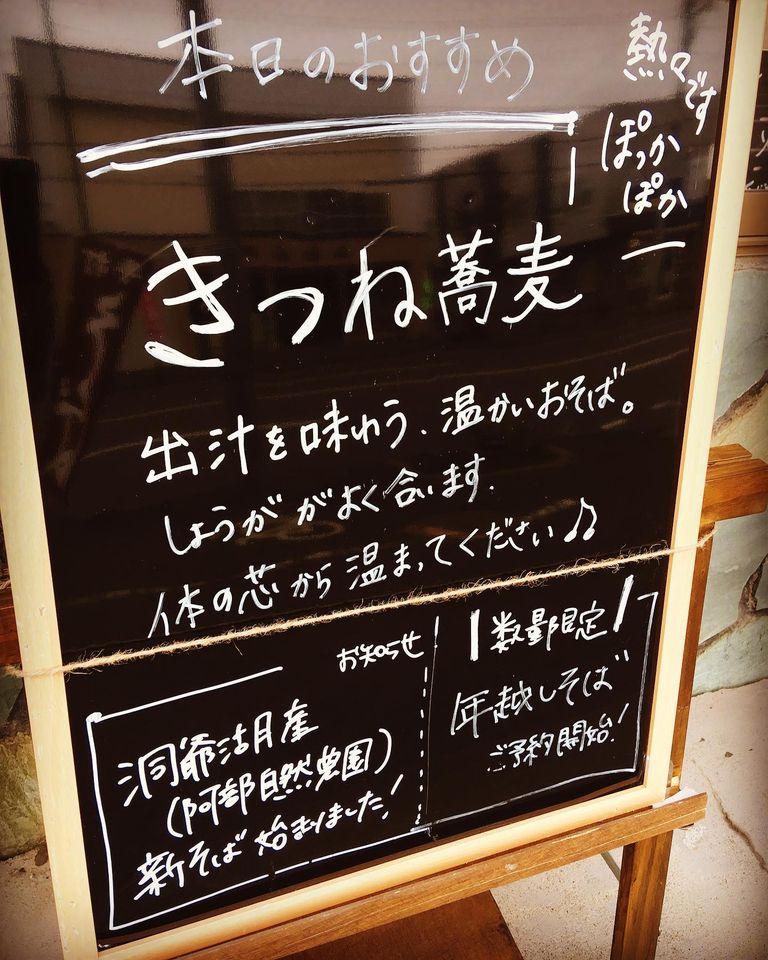 本日のおすすめ
熱々です
ぽっか
ぽか
きつね蕎麦
出汁を味わう、温かいおそば。
しょうががよく合います.
体の芯から温まってください♪
お知らせ
洞爺湖月産
(阿部自然農園)
新そば始まりました!
数量限定
年越しそば
ご予約開始!